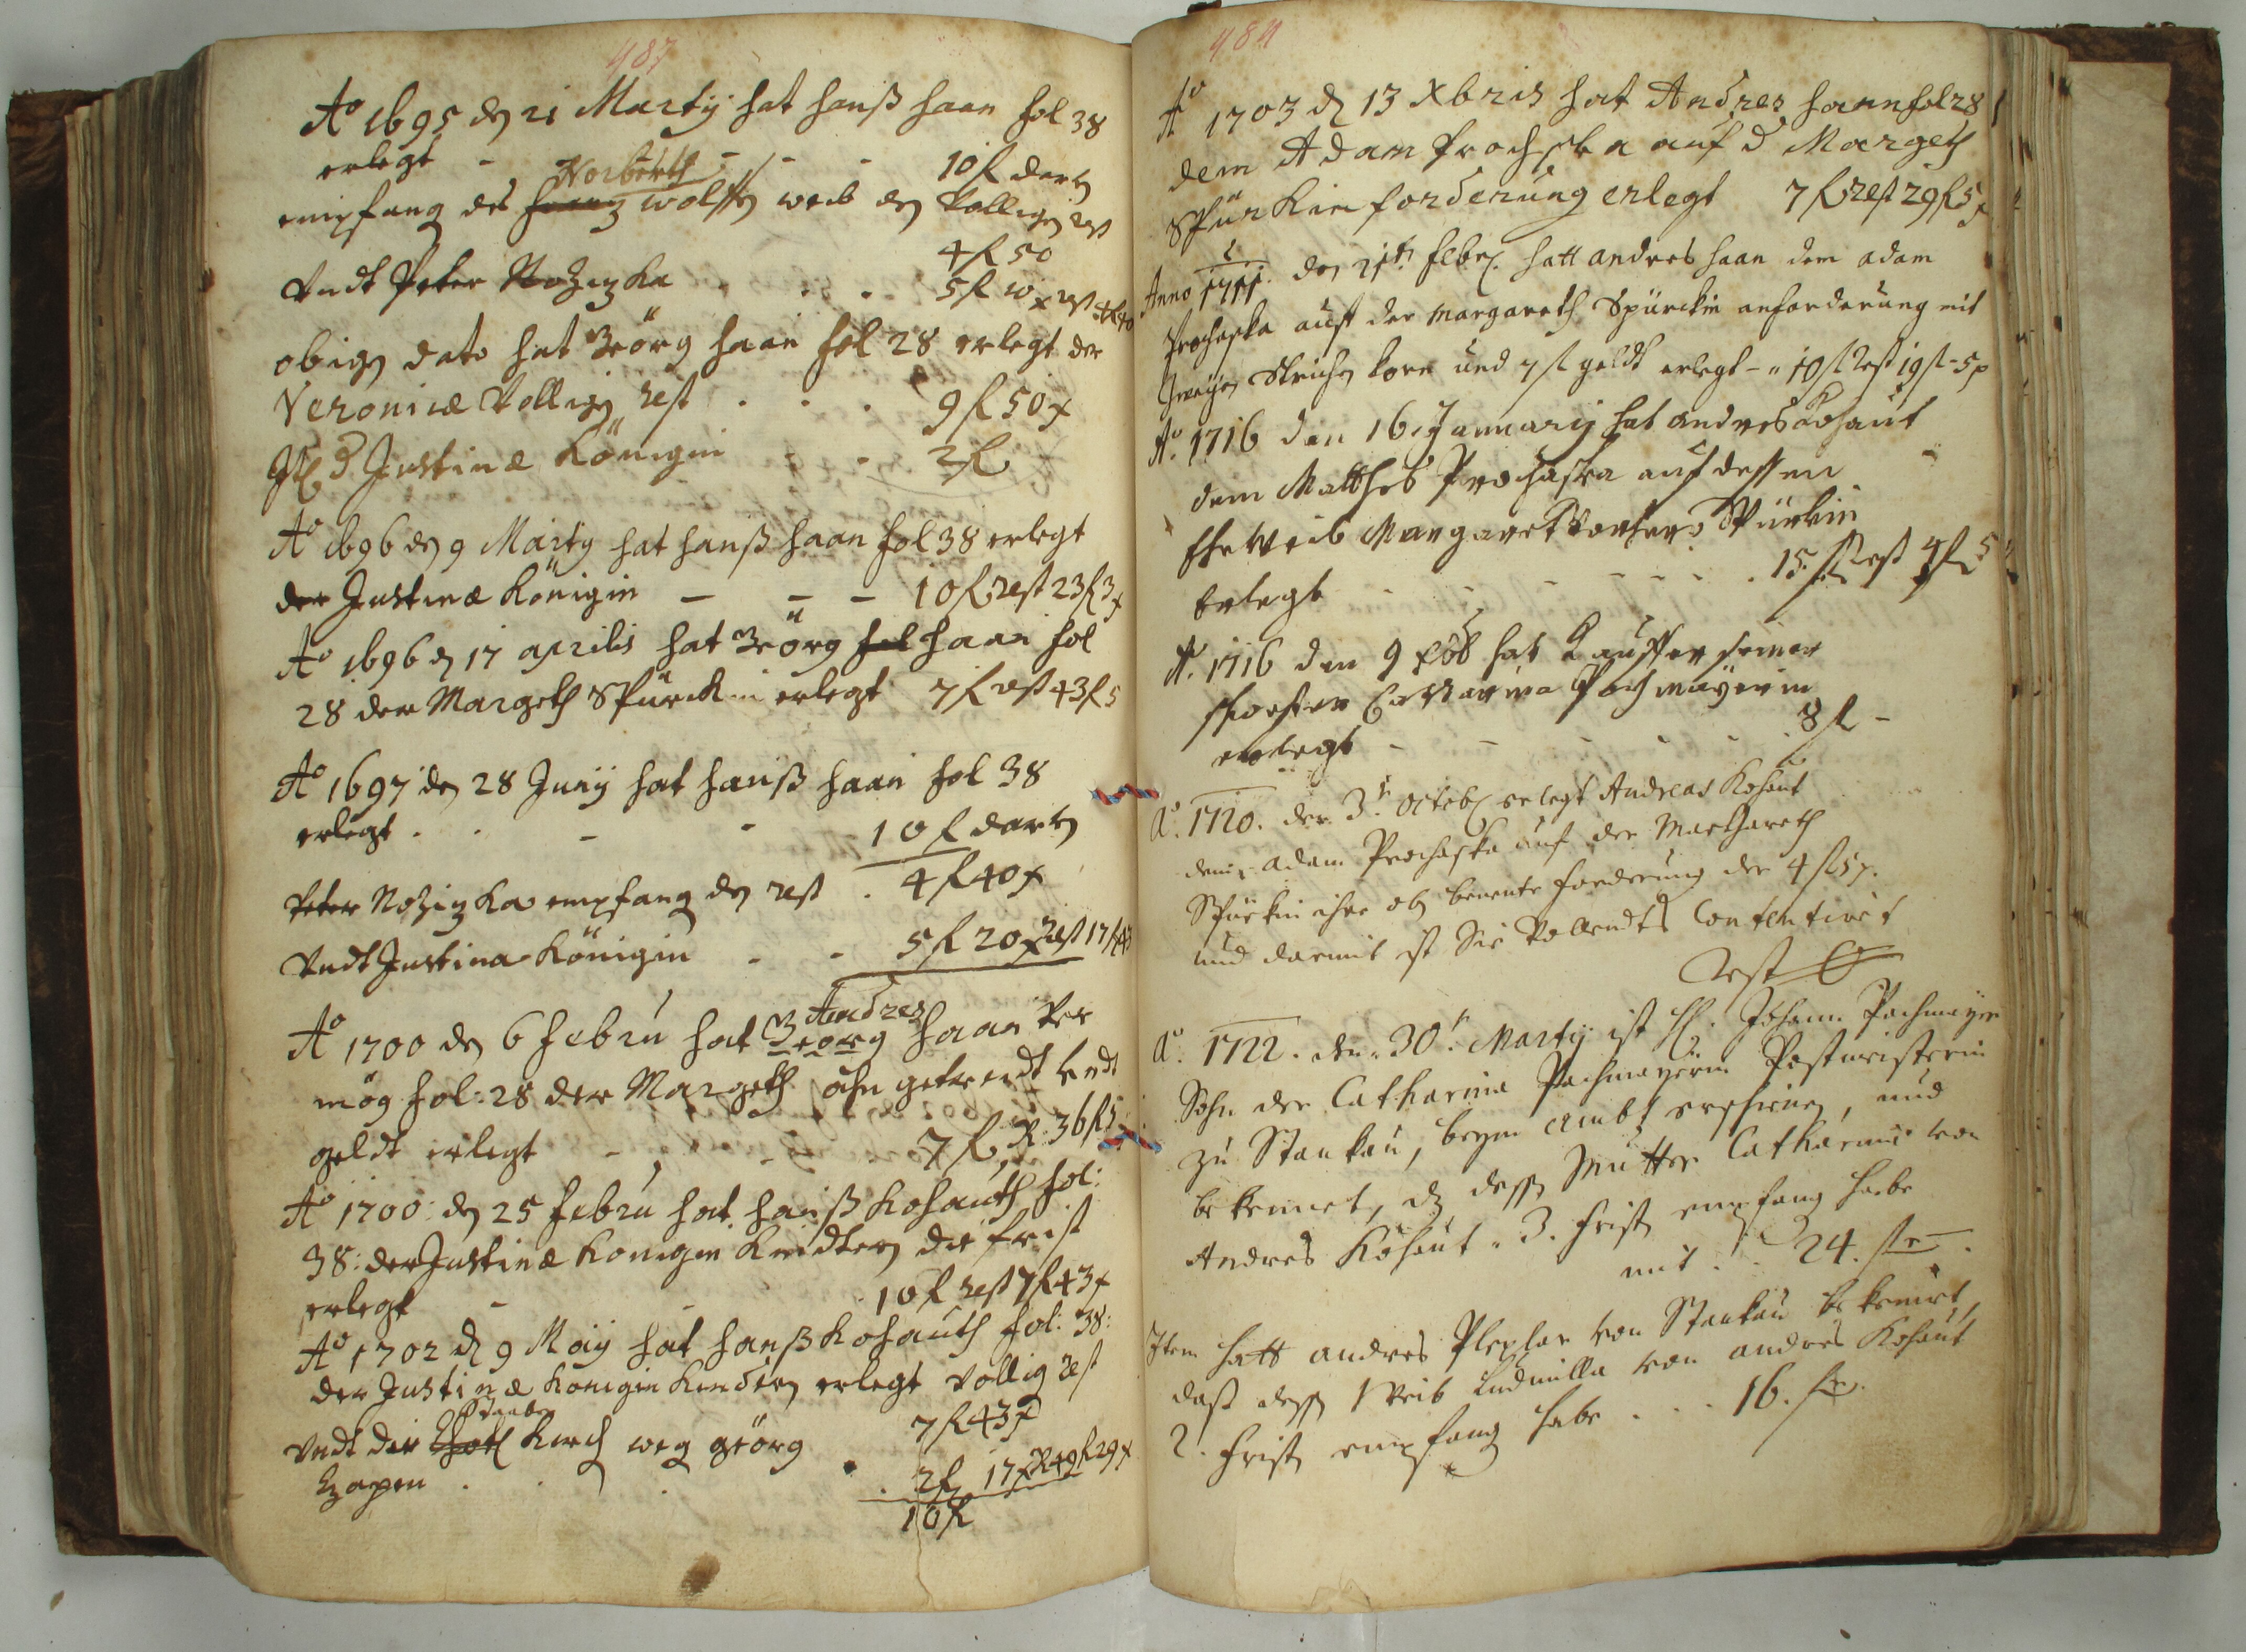 487
Aº 1695 den 21 Marty hat hanß haan fol 38
erlegt - - - - 10 fl darv
Norberth
empfang des wolffen weib den völligen rest
4 fl 50
Vndt Peter Noziczka . . . 5 fl 10 x rest 4 fl 40
obigen dato hat Geörg haan fol 28 erlegt der
Veronicæ völligen rest . . . 9 fl 50 x
Justinæ Königin - - 2 fl
Aº 1696 den 9 Marty hat hanß haan fol 38 erlegt
der Justinæ Königin - - - 10 fl rest 23 fl 3 x
Aº 1696 den 17 aprilis hat Geörg fol haan fol
28 der Margeth Spürckin erlegt 7 fl rest 43 fl 5
Aº 1697 den 28 Juny hat hanß haan fol 38
erlegt . . - - 10 fl darv
Peter Noziczka empfang den rest . 4 fl 40 x
Vndt Justina Königin - - 5 fl 20 x rest 17 fl 43
Andres
Aº 1700 den 6 febru hat Georg haan ver
mög fol: 28 der Margeth ahn getreidt vndt
geldt erlegt - - - 7 fl R 36 fl 5
Aº 1700: den 25 febru hat hanß Kohauth fol:
38: der Justinæ Konigin Kindtern die frist
erlegt - - 10 fl rest 7 fl 43 x
Aº 1702 d 9 Maij hat hanß Kohauth fol: 38:
der Justinæ Konigin Kindern erlegt völlig rest
7 fl 43 x
Vndt der Kirch weg geörg
. . . 2 fl 17 x R 49 fl 29 x
10 fl
484
Aº 1703 d 13 Xbris hat Andres haan fol 28
dem Adam Prochska auf d Margeth
Spürkin forderung erlegt 7 fl rest 29 fl 5 x
Anno 1711. den 21t febr. hatt andres haan dem adam
Prochaska auff der Margareth Spürckin anforderung mit
Zweyen Strichen korn und 7 fl geldt erlegt - 10 fl Rest 19 fl - 5 x
Aº. 1716 den 16 Januarij hat andres Kohaut
dem Mattheß Prochaska auf dessen
Eheweib Margaret Spürkin
Erlegt - - - - - 15 fl Rest 4 fl 5
Aº. 1716 den 9 xbr hat Kauffer seiner
schwester Catharina Pachmayerin
erlegt - - - - - 8 fl -
Aº. 1720. den 3t octob. erlegt Andreas Kohaut
dem adam Prochaska auf der Margareth
Spürkin ihre ob benente forderung der 4 fl 5 x.
und darmit ist Sie vollendts Contentiret
Rest 0
Aº. 1722. den 30t. Marty ist H. Johann Pachmayer
Sohn der Catharina Pachmayerin Postmeisterin
zu Stankau, beym ambt erschienen, und
bekennet, dz dessen Mutter Catharina von
Andres Kohaut 3. fristen empfang habe
mit . . 24. fl.
Item hatt andres Plexlar von Stankau bekennt,
daß dessen Weib Ludmilla von andres Kohaut
2. fristen empfang habe . . . 16. fl.